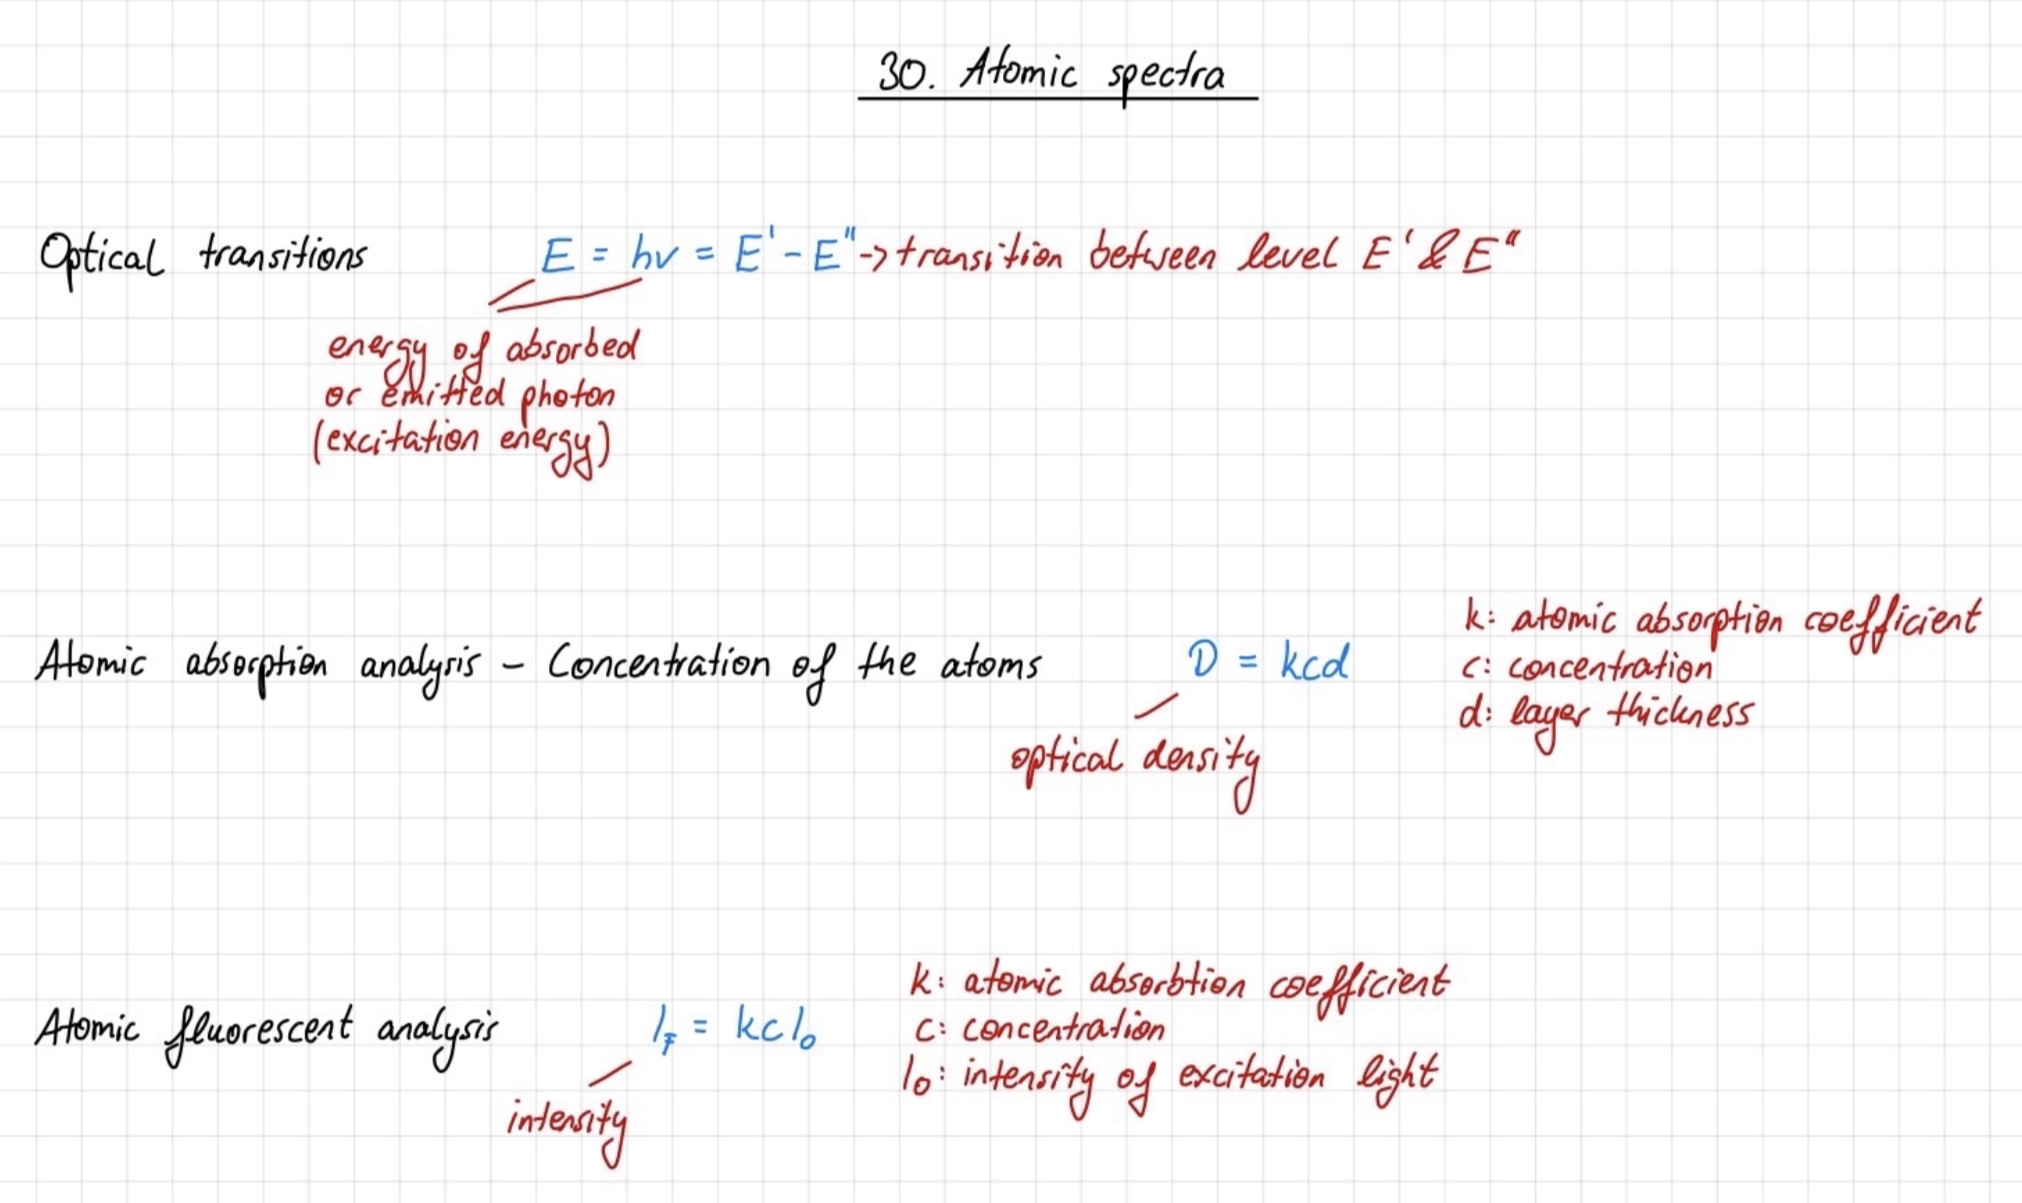 30. Atomic spectra
Optical transitions E = hν = E' - E" -> transition between level E' & E"
energy of absorbed
or emitted photon
(excitation energy)
Atomic absorption analysis – Concentration of the atoms D = kcd
optical density
k: atomic absorption coefficient
c: concentration
d: layer thickness
Atomic fluorescent analysis I_F = kcI₀
intensity
k: atomic absorbtion coefficient
c: concentration
I₀: intensity of excitation light